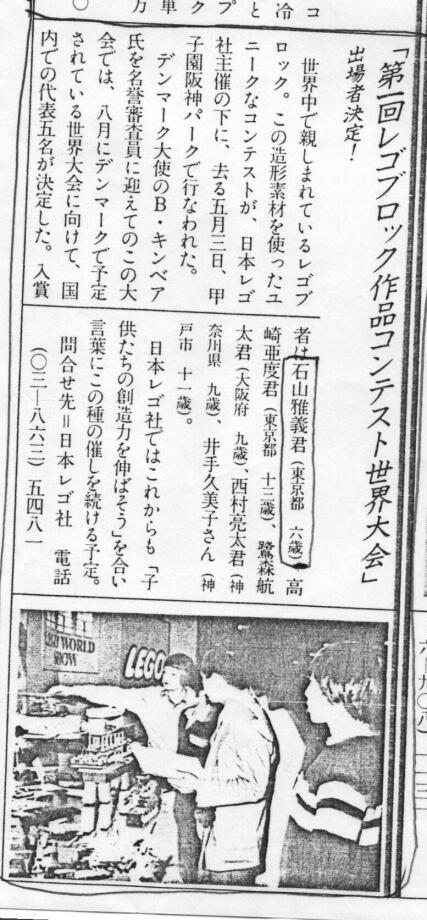 「第一回レゴブロック作品コンテスト世界大会」
出場者決定！
世界中で親しまれているレゴブ
ロック。この造形素材を使ったユ
ニークなコンテストが、日本レゴ
社主催の下に、去る五月三日、甲
子園阪神パークで行なわれた。
デンマーク大使のB・キンベア
氏を名誉審査員に迎えてのこの大
会では、八月にデンマークで予定
されている世界大会に向けて、国
内での代表五名が決定した。入賞
者は石山雅義君（東京都 六歳）高
崎亜度君（東京都 十三歳）、鷺森航
太君（大阪府 九歳）、西村亮太君（神
奈川県 九歳）、井手久美子さん（神
戸市 十一歳）。
日本レゴ社ではこれからも「子
供たちの創造力を伸ばそう」を合い
言葉にこの種の催しを続ける予定。
問合せ先＝日本レゴ社 電話
（〇三―八六三）五四八一
WORLD
SHOW
LEGO